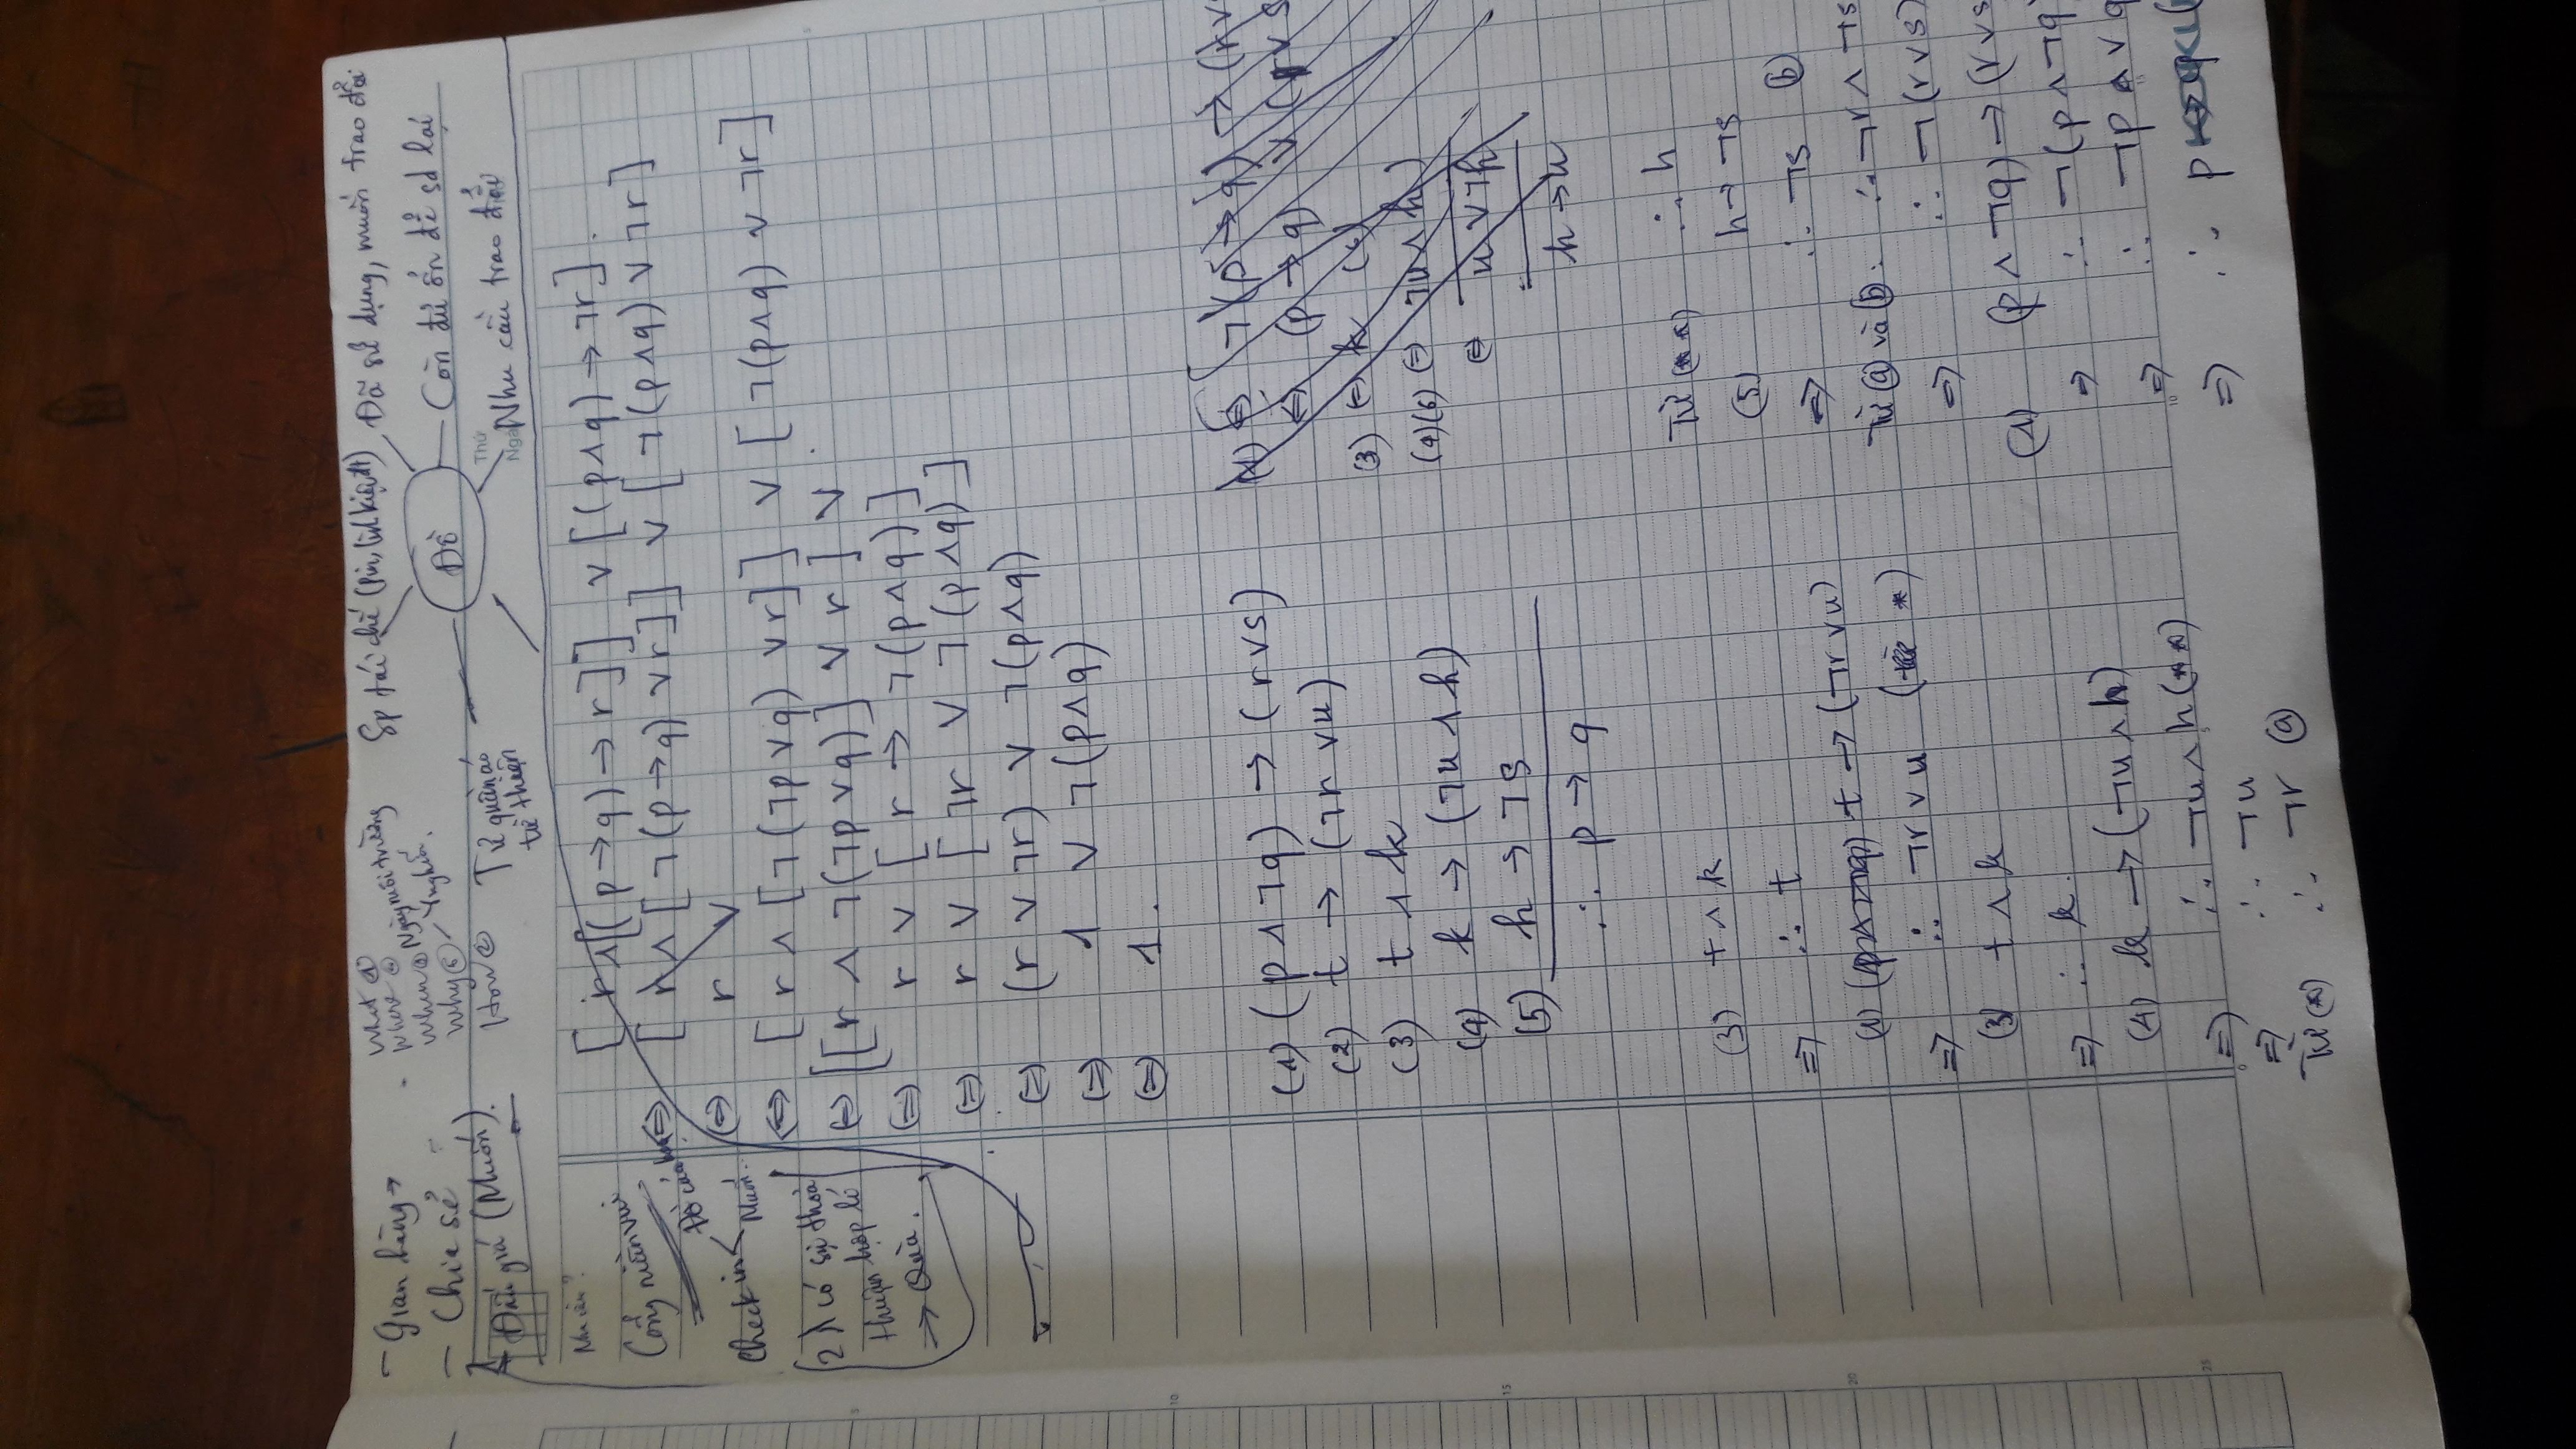 - Gian hàng →
- Chia sẻ
- Đấu giá (Muốn).
What ①
Where ④
When ③ Ngày môi trường
Why ⑤ - Ý nghĩa.
How ②
Sp tái chế (pin, linh kiện đt)
Đã sử dụng, muốn trao đổi
Đồ
Còn đủ ổn để sd lại
Tủ quần áo
từ thiện
Thứ
Nhu cầu trao đổi
Nhu cầu?
Cổng niềm vui
Check in <
Muốn.
2 λ có sự thoả
thuận hợp lí
→ Quà.
[ r ∧ [(p → q) → r]] ∨ [(p ∧ q) → ¬r].
⇔ [ r ∧ [ ¬(p → q) ∨ r]] ∨ [ ¬(p ∧ q) ∨ ¬r ]
⇔ r ∨
⇔ [ r ∧ [ ¬(¬p ∨ q) ∨ r]] ∨ [ ¬(p ∧ q) ∨ ¬r ]
⇔ [[r ∧ ¬(¬p ∨ q)] ∨ r ] ∨
⇔ r ∨ [ r → ¬(p ∧ q) ]
⇔ r ∨ [ ¬r ∨ ¬(p ∧ q) ]
⇔ (r ∨ ¬r) ∨ ¬(p ∧ q)
⇔ 1 ∨ ¬(p ∧ q)
⇔ 1.
(1) (p ∧ ¬q) → (r ∨ s)
(2) t → (¬r ∨ u)
(3) t ∧ k
(4) k → (¬u ∧ h)
(5) h → ¬s
∴ p → q
(1) ⇔ ¬(p → q) → (r ∨
⇔ (p → q) ∨ (r ∨ s
(3) ⇔ k
(4)(6) ⇔ ¬u ∧ h
⇔ u ∨ ¬h
h → u
(3) t ∧ k
⇒ ∴ t
t → (¬r ∨ u)
⇒ ∴ ¬r ∨ u (*)
(3) t ∧ k
⇒ ∴ k.
(4) k → (¬u ∧ h)
⇒ ∴ ¬u ∧ h (**)
⇒ ∴ ¬u
Từ (*) ∴ ¬r ⓐ
Từ (**) ∴ h
(5) h → ¬s
⇒ ∴ ¬s ⓑ
Từ ⓐ và ⓑ: ∴ ¬r ∧ ¬s
⇒ ∴ ¬(r ∨ s)
(1) (p ∧ ¬q) → (r ∨ s
⇒ ∴ ¬(p ∧ ¬q
⇒ ∴ ¬p ∨ q
⇒ ∴ p → q
5
10
15
20
25
0
5
10
15
5